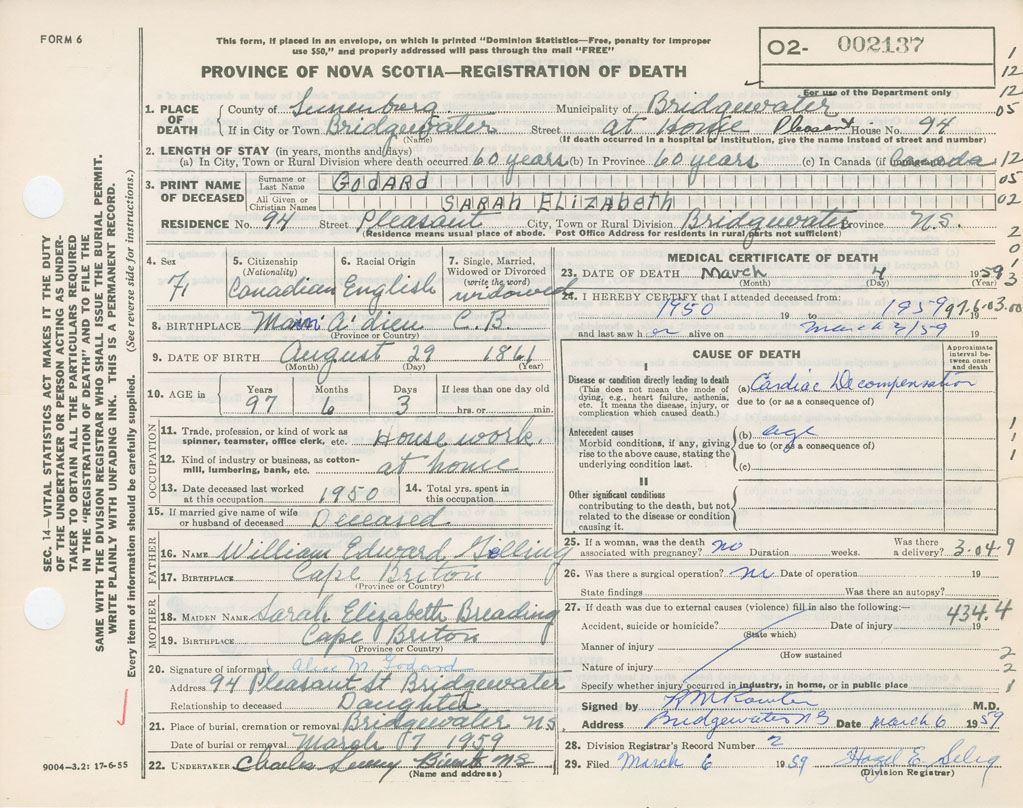 FORM 6
This form, if placed in an envelope, on which is printed "Dominion Statistics—Free, penalty for improper
use $50," and properly addressed will pass through the mail "FREE"
O2- 002137
PROVINCE OF NOVA SCOTIA—REGISTRATION OF DEATH
For use of the Department only
1. PLACE OF DEATH County of Lunenburg Municipality of Bridgewater
If in City or Town Bridgewater Street at Home Pleasant House No. 94
(Name) (If death occurred in a hospital or institution, give the name instead of street and number)
2. LENGTH OF STAY (in years, months and days)
(a) In City, Town or Rural Division where death occurred 60 years (b) In Province 60 years (c) In Canada (if Canada
3. PRINT NAME OF DECEASED Surname or Last Name GODARD
All Given or Christian Names SARAH ELIZABETH
RESIDENCE No. 94 Street Pleasant City, Town or Rural Division Bridgewater Province N.S.
(Residence means usual place of abode. Post Office Address for residents in rural parts not sufficient)
4. Sex 5. Citizenship (Nationality) 6. Racial Origin 7. Single, Married, Widowed or Divorced (write the word)
F. Canadian English widowed
8. BIRTHPLACE Main A'dieu C.B.
(Province or Country)
9. DATE OF BIRTH August 29 1861
(Month) (Day) (Year)
10. AGE in Years Months Days If less than one day old
97 6 3 hrs. or min.
OCCUPATION
11. Trade, profession, or kind of work as spinner, teamster, office clerk, etc. House work.
12. Kind of industry or business, as cotton-mill, lumbering, bank, etc. at home
13. Date deceased last worked at this occupation 1950 14. Total yrs. spent in this occupation
15. If married give name of wife or husband of deceased Deceased.
FATHER
16. NAME William Edward
17. BIRTHPLACE Cape Briton
(Province or Country)
MOTHER
18. MAIDEN NAME Sarah Elizabeth Breading
19. BIRTHPLACE Cape Briton
(Province or Country)
20. Signature of informant Alice M. Godard
Address 94 Pleasant St Bridgewater
Relationship to deceased Daughter
21. Place of burial, cremation or removal Bridgewater NS
Date of burial or removal March 7 1959
22. UNDERTAKER Charles NS
(Name and address)
MEDICAL CERTIFICATE OF DEATH
23. DATE OF DEATH March 4 1959
(Month) (Day) (Year)
24. I HEREBY CERTIFY that I attended deceased from:
1950 19 to 1959 19 97.6.03.00
and last saw h er alive on March 4/59 19
CAUSE OF DEATH
Approximate interval between onset and death
I
Disease or condition directly leading to death (a) Cardiac Decompensation
(This does not mean the mode of dying, e.g., heart failure, asthenia, etc. It means the disease, injury, or complication which caused death.) due to (or as a consequence of)
Antecedent causes (b) age
Morbid conditions, if any, giving rise to the above cause, stating the underlying condition last. due to (or as a consequence of)
(c)
II
Other significant conditions
contributing to the death, but not related to the disease or condition causing it.
25. If a woman, was the death associated with pregnancy? no Duration weeks. Was there a delivery? 3-04-9
26. Was there a surgical operation? no Date of operation 19
State findings Was there an autopsy?
27. If death was due to external causes (violence) fill in also the following:— 434.4
Accident, suicide or homicide? Date of injury 19
(State which)
Manner of injury
(How sustained
Nature of injury
Specify whether injury occurred in industry, in home, or in public place
Signed by M.D.
Address Bridgewater NS Date March 6 1959
28. Division Registrar's Record Number 2
29. Filed March 6 1959 Hazel E. Selig
(Division Registrar)
1
12
12
05
12
05
02
2
0
1
3
1
1
1
2
2
1
SEC. 14—VITAL STATISTICS ACT MAKES IT THE DUTY
OF THE UNDERTAKER OR PERSON ACTING AS UNDER-
TAKER TO OBTAIN ALL THE PARTICULARS REQUIRED
IN THE "REGISTRATION OF DEATH" AND TO FILE THE
SAME WITH THE DIVISION REGISTRAR WHO SHALL ISSUE THE BURIAL PERMIT.
WRITE PLAINLY WITH UNFADING INK. THIS IS A PERMANENT RECORD.
Every item of information should be carefully supplied. (See reverse side for instructions.)
9004-3.2: 17-6-55